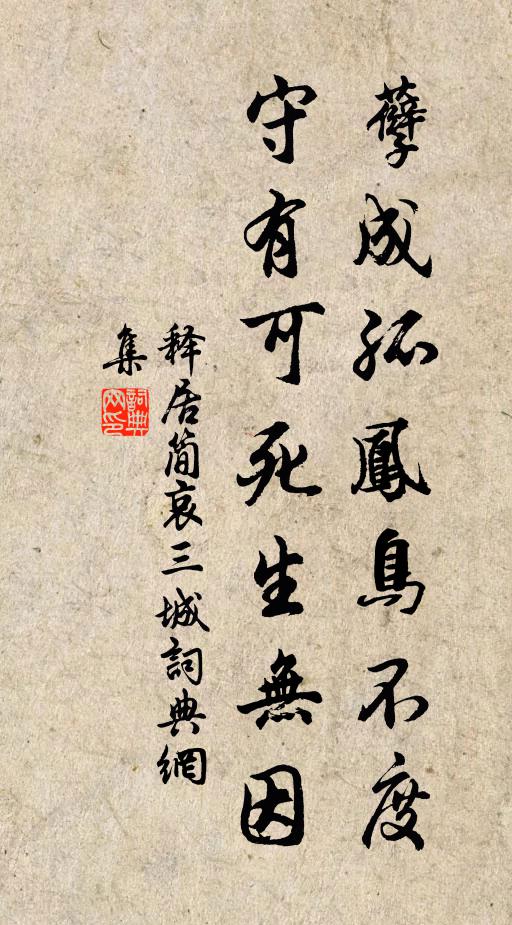 孽成孤鳳鳥不度
守有可死生無因
释居简哀三城詞典網
集
詞典網印